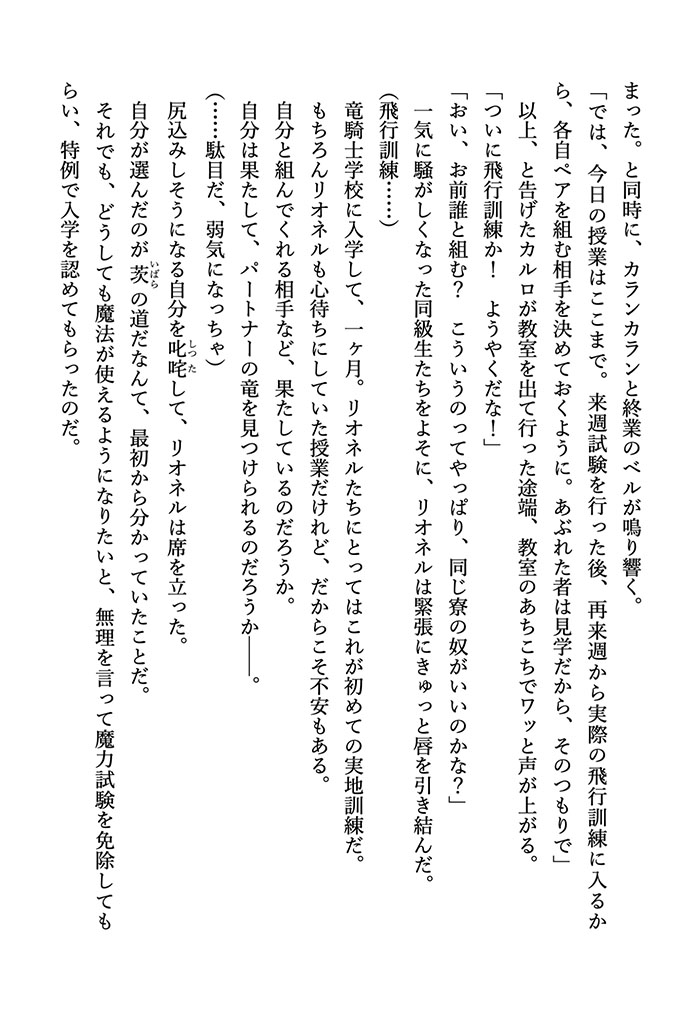 まった。と同時に、カランカランと終業のベルが鳴り響く。
「では、今日の授業はここまで。来週試験を行った後、再来週から実際の飛行訓練に入るか
ら、各自ペアを組む相手を決めておくように。あぶれた者は見学だから、そのつもりで」
　以上、と告げたカルロが教室を出て行った途端、教室のあちこちでワッと声が上がる。
「ついに飛行訓練か！　ようやくだな！」
「おい、お前誰と組む？　こういうのってやっぱり、同じ寮の奴がいいのかな？」
　一気に騒がしくなった同級生たちをよそに、リオネルは緊張にきゅっと唇を引き結んだ。
（飛行訓練……）
　竜騎士学校に入学して、一ヶ月。リオネルたちにとってはこれが初めての実地訓練だ。
　もちろんリオネルも心待ちにしていた授業だけれど、だからこそ不安もある。
　自分と組んでくれる相手など、果たしているのだろうか。
　自分は果たして、パートナーの竜を見つけられるのだろうか――。
（……駄目だ、弱気になっちゃ）
　尻込みしそうになる自分を叱咤しつたして、リオネルは席を立った。
　自分が選んだのが茨いばらの道だなんて、最初から分かっていたことだ。
　それでも、どうしても魔法が使えるようになりたいと、無理を言って魔力試験を免除しても
らい、特例で入学を認めてもらったのだ。